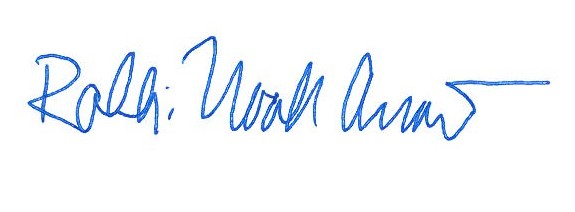 Rabbi Noah Arnow